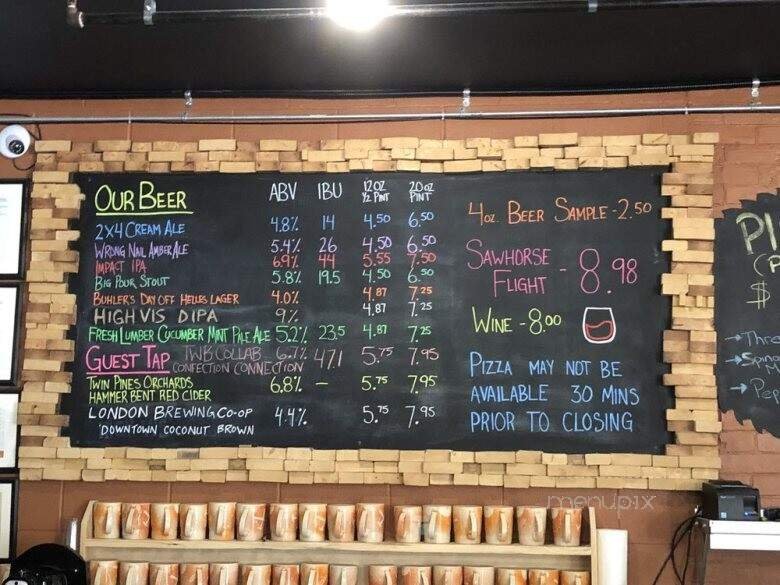 OUR BEER ABV IBU 12 OZ ½ PINT 20 OZ PINT
2X4 CREAM ALE 4.8% 14 4.50 6.50
WRONG NAIL AMBER ALE 5.4% 26 4.50 6.50
IMPACT IPA 6.9% 44 5.55 7.50
BIG POUR STOUT 5.8% 19.5 4.50 6.50
BUHLER'S DAY OFF HELLES LAGER 4.0% 4.87 7.25
HIGH VIS DIPA 9% 4.87 7.25
FRESH LUMBER CUCUMBER MINT PALE ALE 5.2% 23.5 4.87 7.25
GUEST TAP TWB COLLAB 6.7% 47.1 5.75 7.95
CONFECTION CONNECTION
TWIN PINES ORCHARDS 6.8% – 5.75 7.95
HAMMER BENT RED CIDER
LONDON BREWING CO-OP 4.4% 5.75 7.95
'DOWNTOWN COCONUT BROWN
4oz. BEER SAMPLE - 2.50
SAWHORSE
FLIGHT - 8.98
WINE - 8.00
PIZZA MAY NOT BE
AVAILABLE 30 MINS
PRIOR TO CLOSING
PI
(P
$
→ Thre
→ Spin
M
→ Pep
menupix